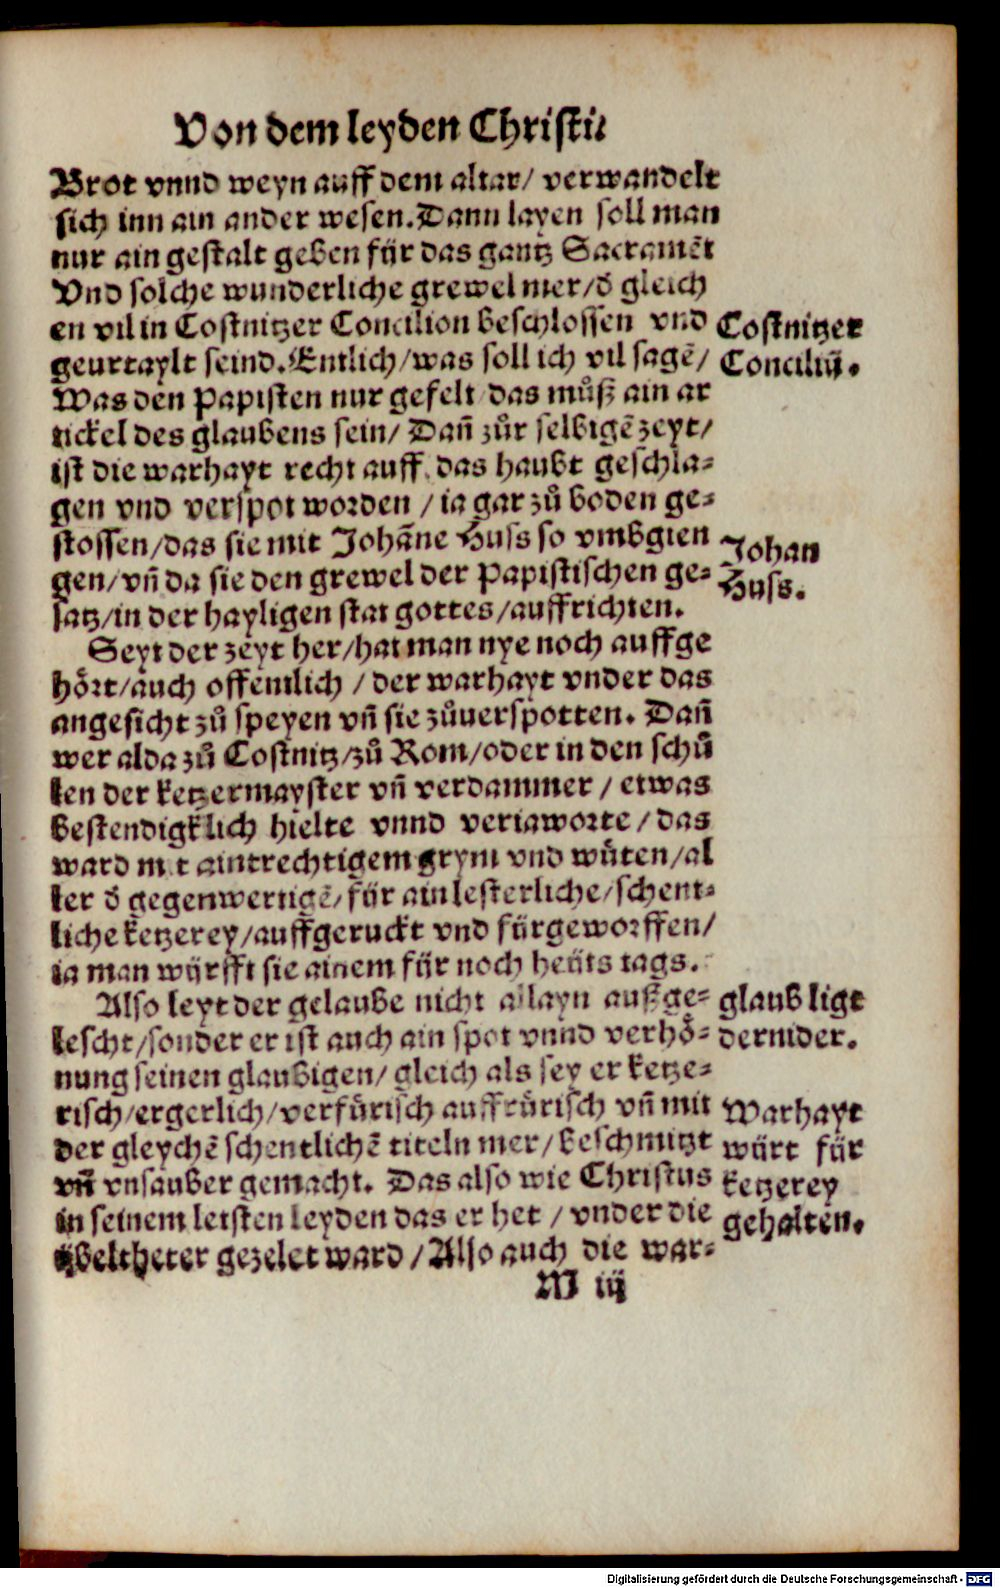 Von dem leyden Christi
Brot vnnd weyn auff dem altar/ verwandelt
sich inn ain ander wesen. Dann layen soll man
nur ain gestalt geben für das gantz Sacramēt
Vnd solche wunderliche grewel mer/ dͤ gleich
en vil in Costnitzer Concilion beschlossen vnd
Costnitzer
geurtaylt seind. Entlich/ was soll ich vil sagē/
Conciliū.
Was den Papisten nur gefelt das můß ain ar
tickel des glaubens sein/ Dañ zůr selbigē zeyt/
ist die warhayt recht auff das haubt geschla-
gen vnd verspot worden / ia gar zů boden ge-
stossen/ das sie mit Johāne Huss so vmbgien
Johan
gen/ vñ da sie den grewel der Papistischen ge-
Huss.
satz/ in der hayligen stat gottes/ auffrichten.
Seyt der zeyt her/ hat man nye noch auffge
hört/ auch offentlich / der warhayt vnder das
angesicht zů speyen vñ sie zůuerspotten. Dañ
wer alda zů Costnitz/ zů Rom/ oder in den schů
len der ketzermayster vñ verdammer / etwas
bestendigklich hielte vnnd veriaworte / das
ward mit aintrechtigem grym vnd wůten/ al
ler dͤ gegenwertigē/ für ain lesterliche/ schent-
liche ketzerey/ auffgeruckt vnd fürgeworffen/
ia man würfft sie ainem für noch heüts tags.
Also leyt der gelaube nicht allayn außge-
glaub ligt
lescht/ sonder er ist auch ain spot vnnd verhö-
dernider.
nung seinen glaubigen/ gleich als sey er ketze-
risch/ ergerlich/ verfůrisch auffrůrisch vñ mit
Warhayt
der gleychē schentlichē titeln mer/ beschmitzt
würt für
vñ vnsauber gemacht. Das also wie Christus
ketzerey
in seinem letsten leyden das er het / vnder die
gehalten.
übeltheter gezelet ward / Also auch die war-
M iij
Digitalisierung gefördert durch die Deutsche Forschungsgemeinschaft - DFG